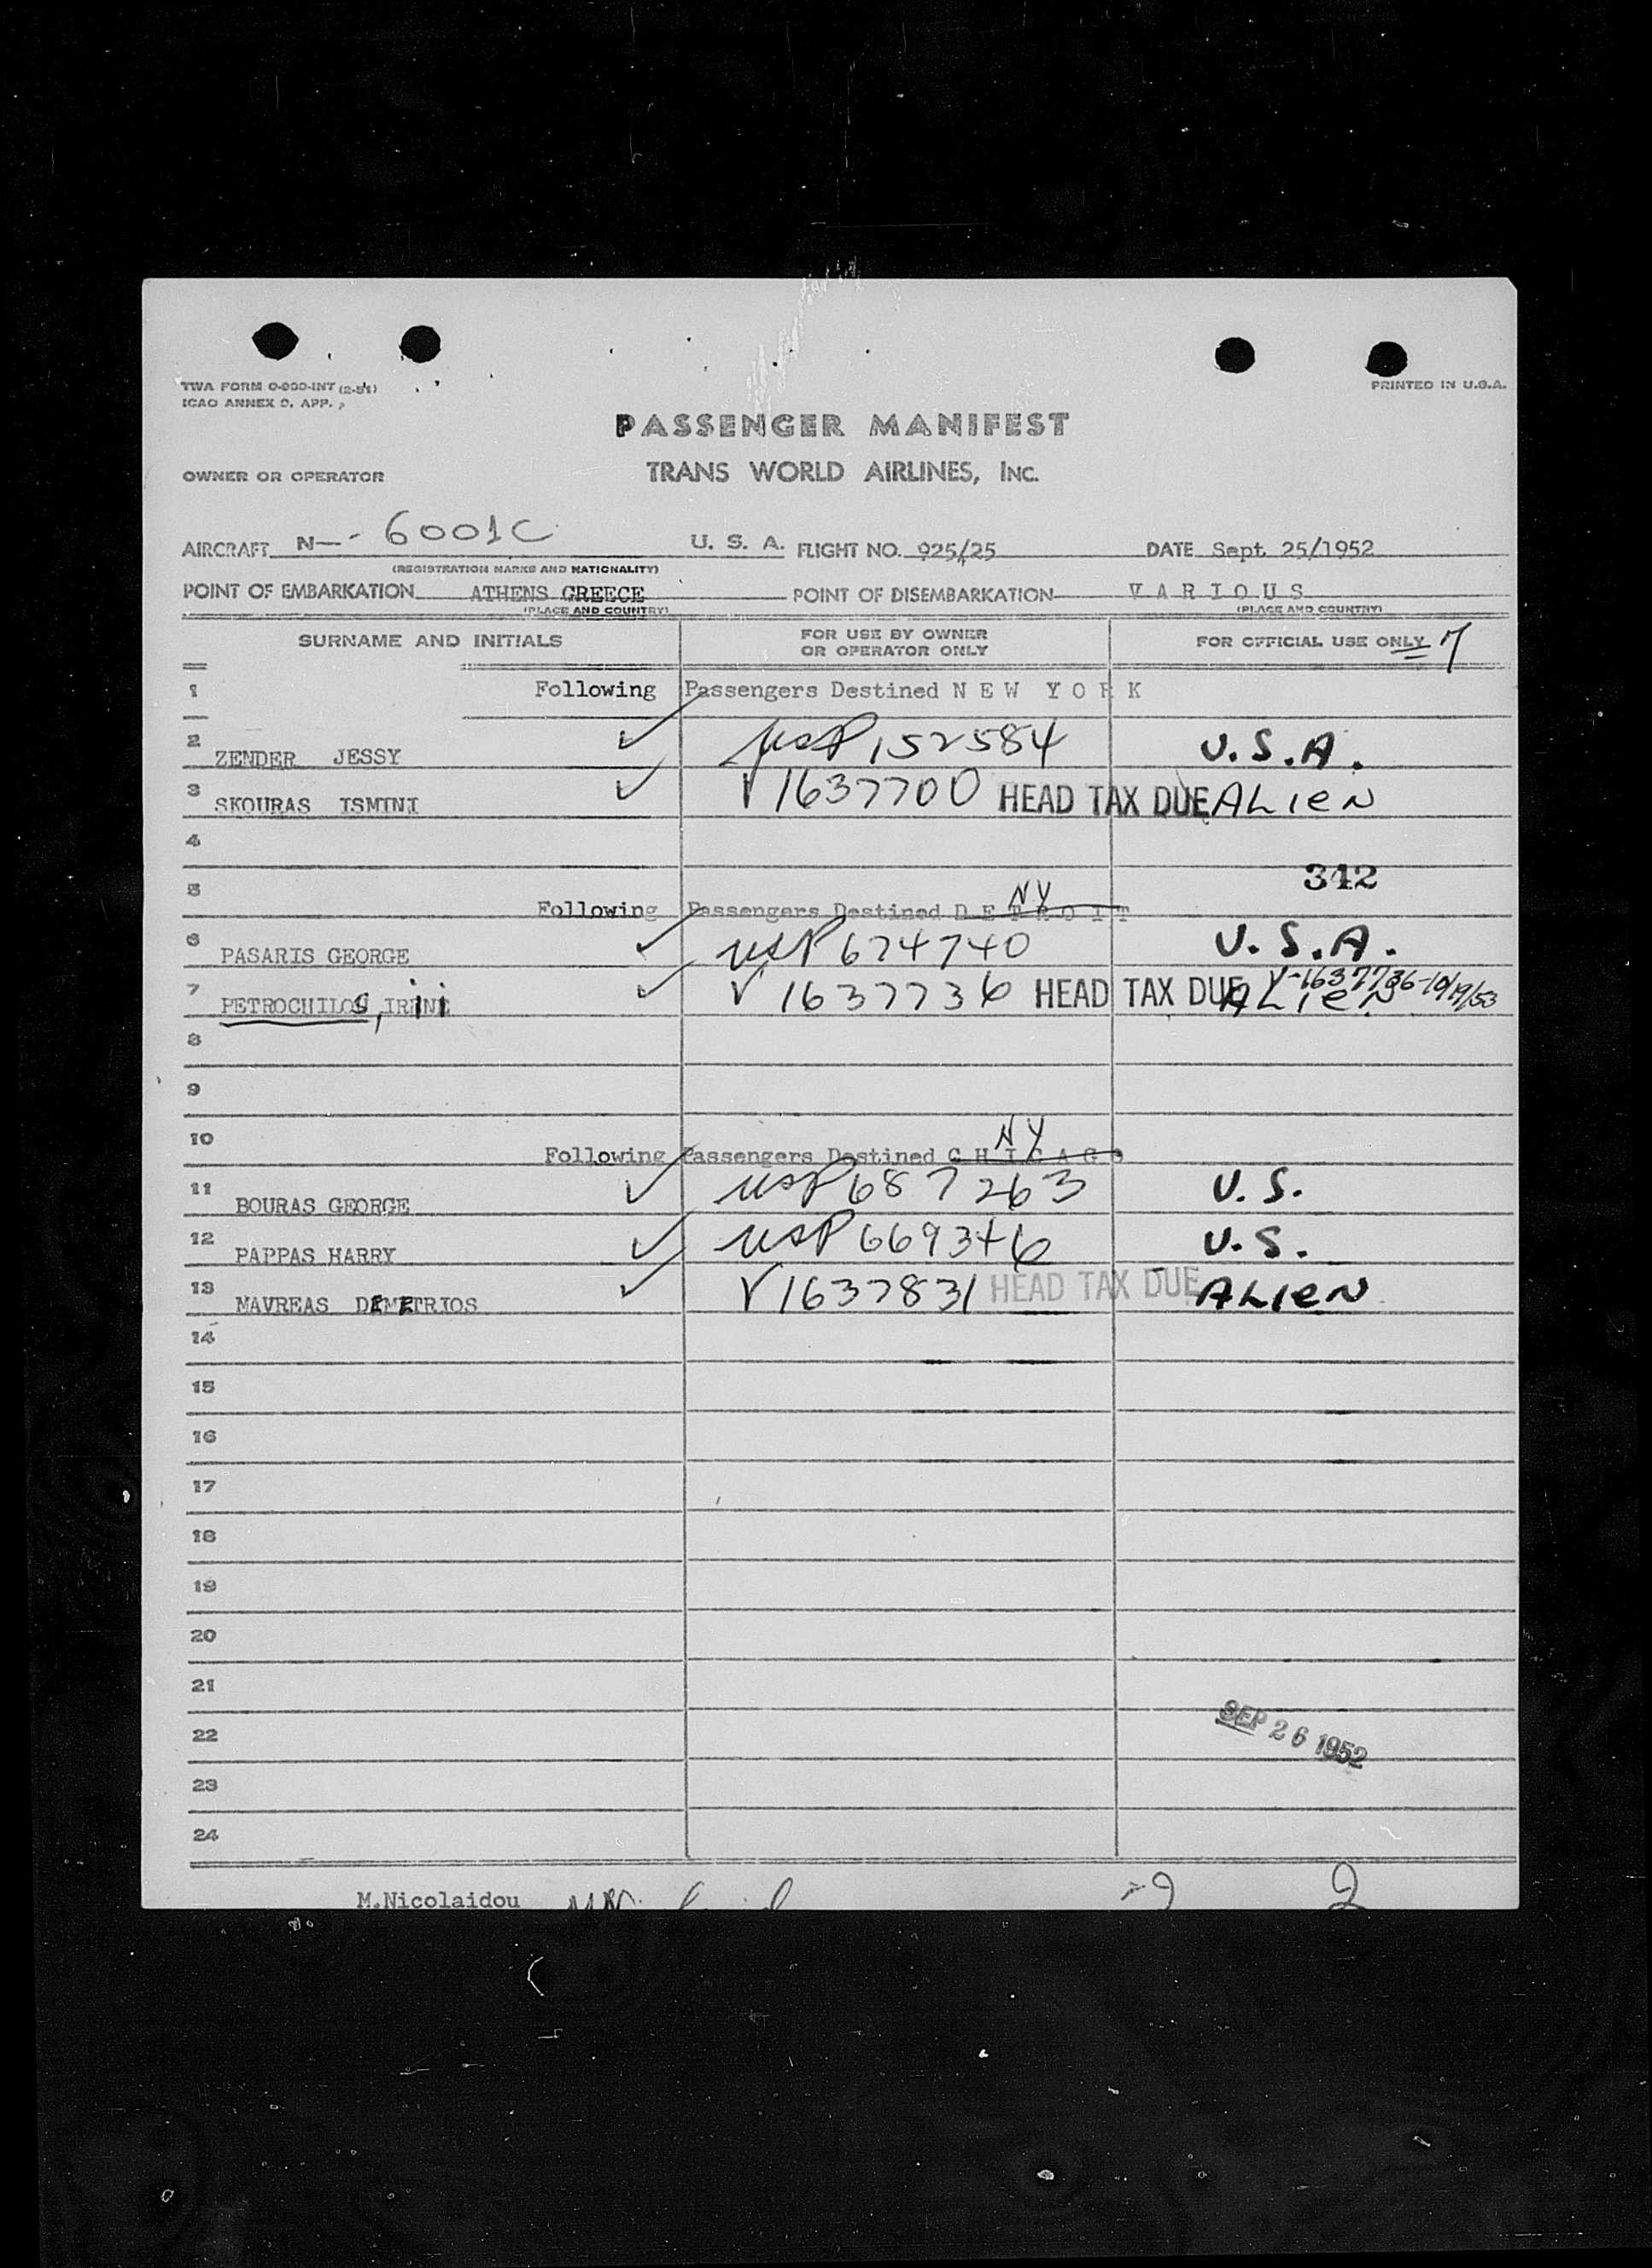 TWA FORM O-200-INT (2-51)
ICAO ANNEX 9, APP.
PRINTED IN U.S.A.
PASSENGER MANIFEST
OWNER OR OPERATOR TRANS WORLD AIRLINES, INC.
AIRCRAFT N-- 6001C U. S. A. FLIGHT NO. 925/25 DATE Sept. 25/1952
(REGISTRATION MARKS AND NATIONALITY)
POINT OF EMBARKATION ATHENS GREECE POINT OF DISEMBARKATION V A R I O U S
(PLACE AND COUNTRY) (PLACE AND COUNTRY)
SURNAME AND INITIALS FOR USE BY OWNER OR OPERATOR ONLY FOR OFFICIAL USE ONLY 7
1 Following Passengers Destined N E W Y O R K
2 ZENDER JESSY ✓ USP 152584 U.S.A.
3 SKOURAS ISMINI ✓ V 1637700 HEAD TAX DUE ALIEN
4
342
5 Following Passengers Destined D E T R O I T NY
6 PASARIS GEORGE ✓ USP 674740 U.S.A.
7 PETROCHILOS, IRINI ✓ V 1637736 HEAD TAX DUE ALIEN V-1637736-10/19/53
8
9
10 Following Passengers Destined C H I C A G O NY
11 BOURAS GEORGE ✓ USP 687263 U.S.
12 PAPPAS HARRY ✓ USP 669346 U.S.
13 MAVREAS DEMETRIOS ✓ V 1637831 HEAD TAX DUE ALIEN
14
15
16
17
18
19
20
21
22 SEP 26 1952
23
24
M.Nicolaidou